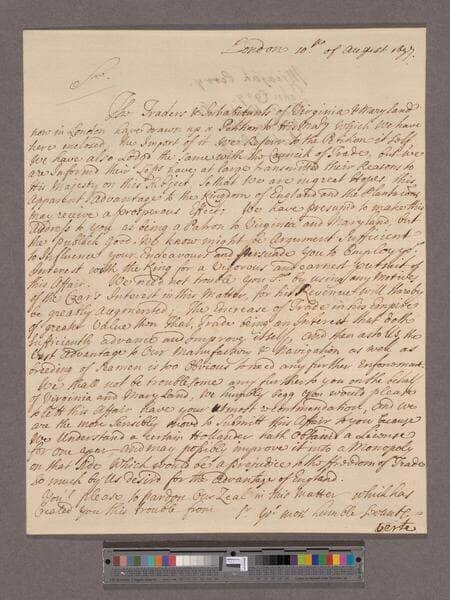 London 10.th of August 1697.
Sir.
The Traders & Inhabitants of Virginia & Maryland
now in London have drawn up a Petition to His Maj.ty which We have
here enclosed, the Import of it We Referr to the Petition it Self
We have also Lodged the same with the Council of Trade, but We
are Informed their Lopps have at large transmitted their Reasons to
His Majesty on this Subject, so that We are in great Hopes this
Apparent Advantage to the Kingdom of England and the Plantations
may receive a prosperous Effect; We have presum'd to make this
Address to you as being a Patron to Virginia and Maryland, but
the Publick Good We know might be Argument Sufficient
to Influence your Endeavours and Persuade You to Employ yo.r
Interest with the King for a Vigorous and earnest
this Affair. We need not trouble You S.r by using any Motive
of the Czar's Interest in this Matter, for his Revenue will thereby
be greatly Augmented. The Increase of Trade in his Empire
of greater Value then that, Trade being an Interest that doth
sufficiently advance and improve it self, and then as to Us the
Vast Advantage to Our Manufactory & Navigation, as well as
breeding of Seamen is too Obvious to need any further Enforcement.
We shall not be troublesome any further to you on the behalf
of Virginia and Mary Land, We humbly begg you would please
to lett this Affair have your Utmost recommendation, and we
are the more Sensibly Mov'd to Submitt this Affair to you because
We Understand a Certain Hollander hath Obtained a License
for One year and may possibly improve it into a Monopoly
on that Side which would be a prejudice to the freedom of Trade
so much by Us Desired for the Advantage of England.
You'l please to pardon Our Zeal in this Matter which has
Created you this trouble from S.r yo.r most humble Servants
verte